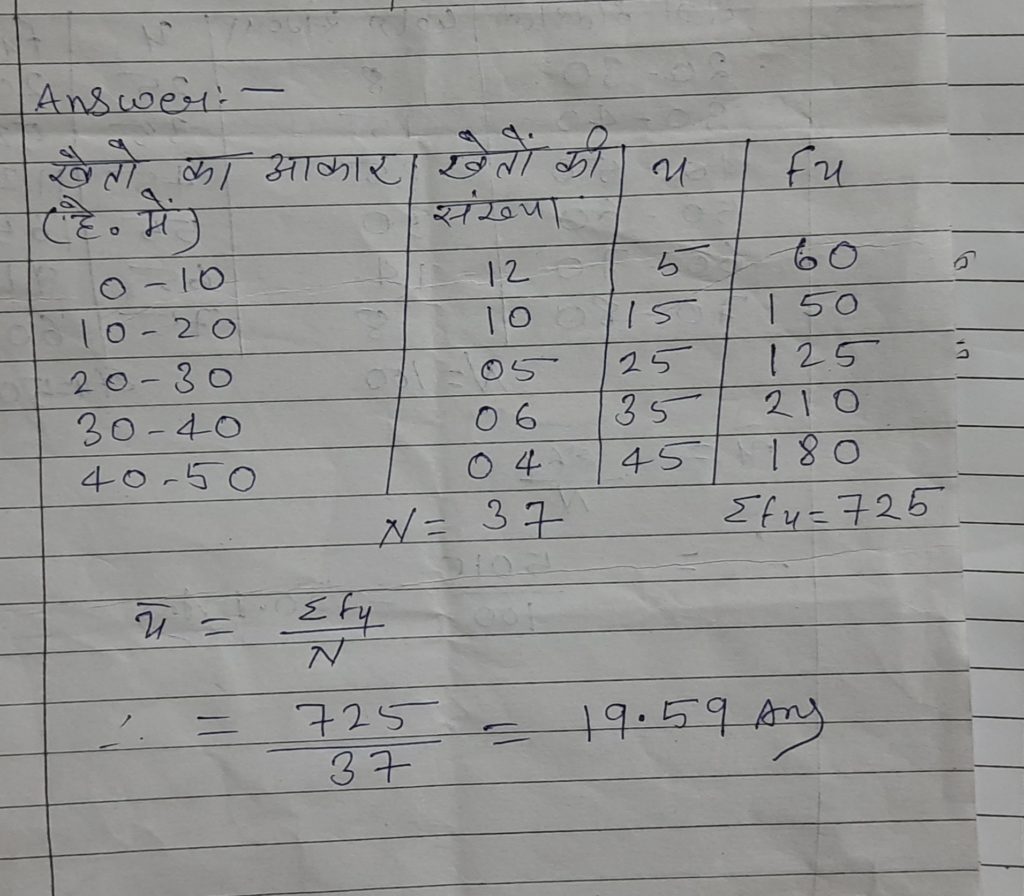 Answer:—
खेतो का आकार | खेतों की | x | fx
(हे. में) | संख्या
0-10 | 12 | 5 | 60
10-20 | 10 | 15 | 150
20-30 | 05 | 25 | 125
30-40 | 06 | 35 | 210
40-50 | 04 | 45 | 180
N= 37 Σfx=725
x̄ = Σfx
N
∴ = 725 = 19.59 Ans
37